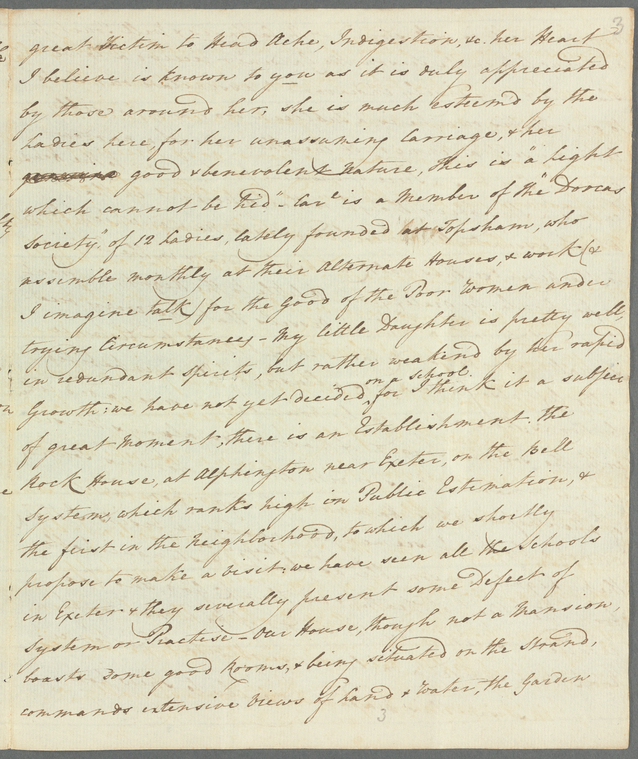 3
great Victim to Head Ache, Indigestion, &c. her Heart
I believe is known to you as it is duly appreciated
by those around her, she is much esteem'd by the
Ladies here for her unassuming Carriage, & her
good & benevolent Nature, This is "a light
which cannot be hid" - Car is a Member of the "Dorcas
Society" of 12 Ladies, lately founded at Topsham, who
assemble monthly at their Alternate Houses, & work (&
I imagine talk) for the Good of the Poor Women under
trying Circumstances - My little Daughter is pretty well,
in redundant Spirits, but rather weakend by her rapid
on a school.
Growth: we have not yet decided, for I think it a subject
of great Moment, there is an Establishment, the
Rock House, at Alphington near Exeter, on the Bell
System, which ranks high in Public Estimation, &
the first in the Neighborhood, to which we shortly
propose to make a visit: we have seen all the Schools
in Exeter & they severally present some Defect of
System or Practise - Our House, though not a Mansion,
boasts some good Rooms, & being situated on the Strand,
commands extensive Views of Land & Water, the Garden
3